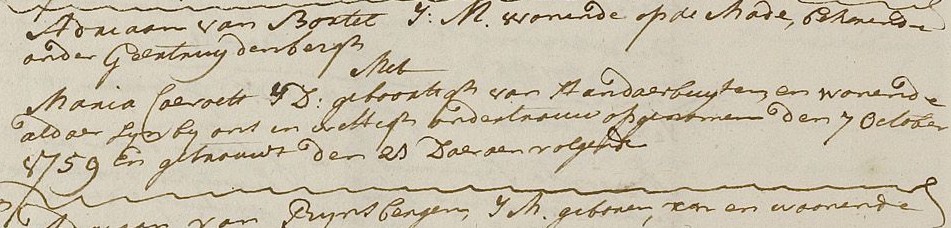 Adriaan van Boxtel J: M. wonende op de Made, behorende
onder Geertruydenbergh
Met
Maria Caeroett J D: geboortigh van Standaerbuyten, en wonende
aldaer Zyn by ons in wettigh ondertrouw opgenomen den 7 October
1759 En getrouwt den 23 Daeraenvolgende
van Rynsbergen, J M. geboren van en woonende